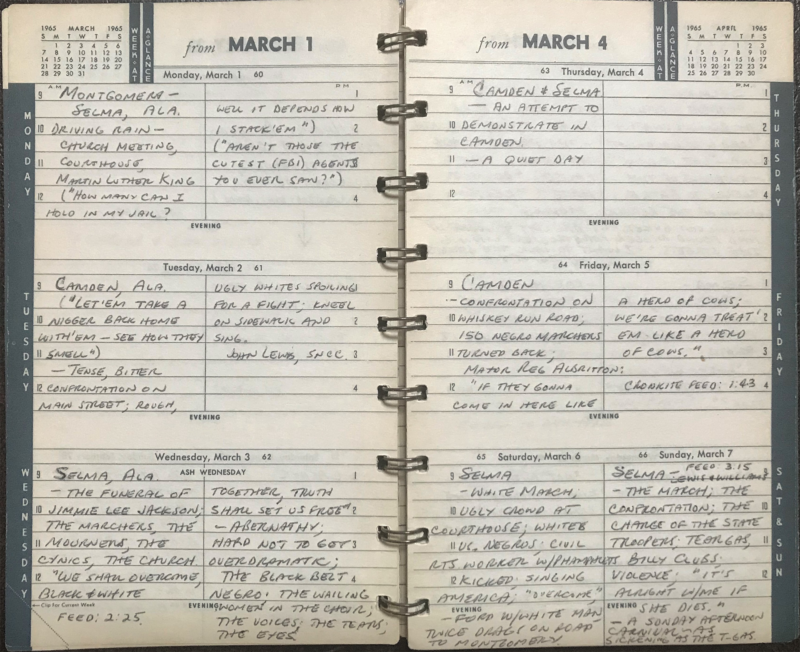 1965 MARCH 1965
S M T W T F S
1 2 3 4 5 6
7 8 9 10 11 12 13
14 15 16 17 18 19 20
21 22 23 24 25 26 27
28 29 30 31
WEEK-AT
A-GLANCE
from MARCH 1
Monday, March 1 60
MONDAY
A.M.
9 MONTGOMERY —
SELMA, ALA.
10 DRIVING RAIN —
CHURCH MEETING,
11 COURTHOUSE,
MARTIN LUTHER KING
12 ("HOW MANY CAN I
HOLD IN MY JAIL?
P.M.
1
WELL IT DEPENDS HOW
I STACK 'EM") 2
("AREN'T THOSE THE
CUTEST (FBI) AGENTS 3
YOU EVER SAW?")
4
EVENING
Tuesday, March 2 61
TUESDAY
9 CAMDEN, ALA.
("LET 'EM TAKE A
10 NIGGER BACK HOME
WITH 'EM — SEE HOW THEY
11 SMELL")
— TENSE, BITTER
12 CONFRONTATION ON
MAIN STREET; ROUGH,
UGLY WHITES SPOILING 1
FOR A FIGHT; KNEEL
ON SIDEWALK AND 2
SING.
JOHN LEWIS, SNCC. 3
4
EVENING
Wednesday, March 3 62
ASH WEDNESDAY
WEDNESDAY
9 SELMA, ALA.
— THE FUNERAL OF
10 JIMMIE LEE JACKSON;
THE MARCHERS, THE
11 MOURNERS, THE
CYNICS, THE CHURCH
12 "WE SHALL OVERCOME,
BLACK & WHITE
1
TOGETHER, TRUTH
SHALL SET US FREE" 2
— ABERNATHY;
HARD NOT TO GET 3
OVERDRAMATIC;
THE BLACK BELT 4
NEGRO: THE WAILING
Clip for Current Week
EVENING
WOMEN IN THE CHOIR;
FEED: 2:25
THE VOICES; THE TEARS;
THE EYES
from MARCH 4
WEEK-AT
A-GLANCE
1965 APRIL 1965
S M T W T F S
1 2 3
4 5 6 7 8 9 10
11 12 13 14 15 16 17
18 19 20 21 22 23 24
25 26 27 28 29 30
63 Thursday, March 4
THURSDAY
A.M.
9 CAMDEN & SELMA
— AN ATTEMPT TO
10 DEMONSTRATE IN
CAMDEN.
11 — A QUIET DAY
12
P.M.
1
2
3
4
EVENING
64 Friday, March 5
FRIDAY
9 CAMDEN
— CONFRONTATION ON
10 WHISKEY RUN ROAD;
150 NEGRO MARCHERS
11 TURNED BACK;
MAYOR REG ALBRITTON:
12 "IF THEY GONNA
COME IN HERE LIKE
1
A HERD OF COWS;
WE'RE GONNA TREAT 2
'EM LIKE A HERD
OF COWS." 3
CRONKITE FEED: 1:43 4
EVENING
65 Saturday, March 6
SAT & SUN
9 SELMA
— WHITE MARCH,
10 UGLY CROWD AT
COURTHOUSE; WHITES
11 VS. NEGROS: CIVIL
RTS WORKER W/PHAMPHLETS
12 KICKED: SINGING
AMERICA; "OVERCOME"
EVENING
— FORD W/WHITE MAN
TWICE DRAGS ON ROAD
TO MONTGOMERY
66 Sunday, March 7
SELMA — FEED: 3:15 9
LEWIS & WILLIAMS
— THE MARCH; THE
CONFRONTATION; THE 10
CHARGE OF THE STATE
TROOPERS: TEARGAS, 11
BILLY CLUBS.
VIOLENCE: "IT'S 12
ALRIGHT W/ME IF
EVENING
SHE DIES."
— A SUNDAY AFTERNOON
CARNIVAL — AS
SICKENING AS THE T-GAS